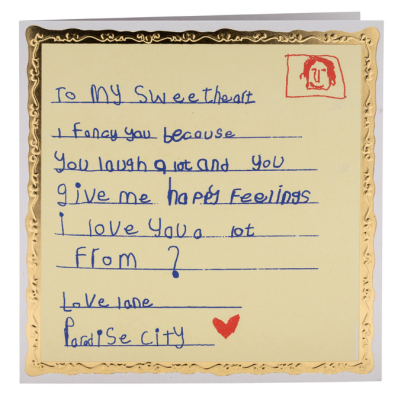 To My Sweetheart
I fancy you because
You laugh a lot and you
give me happy Feelings
i love You a lot
From ?
Love lane
Paradise City